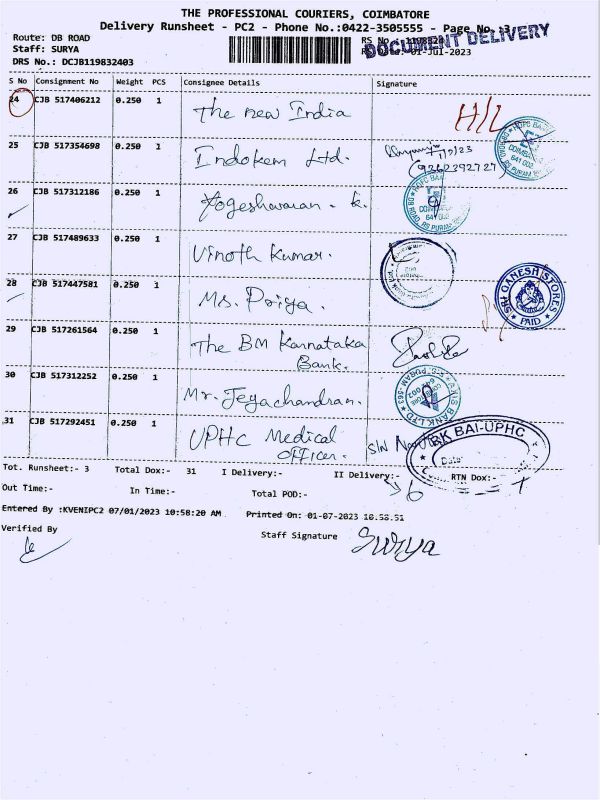 THE PROFESSIONAL COURIERS, COIMBATORE
Delivery Runsheet - PC2 - Phone No.:0422-3505555 - Page No. 3
Route: DB ROAD
DOCUMENT DELIVERY
Staff: SURYA
01-Jul-2023
DRS No.: DCJB119832403
S No Consignment No Weight PCS Consignee Details Signature
24 CJB 517406212 0.250 1 The new India H/L
25 CJB 517354698 0.250 1 Indokem Ltd.
26 CJB 517312186 0.250 1 Yogeshwaran. k.
27 CJB 517489633 0.250 1 Vinoth Kumar.
28 CJB 517447581 0.250 1 Ms. Priya.
SRI GANESH STORES
PAID
29 CJB 517261564 0.250 1 The BM Karnataka
Bank.
30 CJB 517312252 0.250 1 Mr. Jegachandran.
31 CJB 517292451 0.250 1 UPHC Medical
officer.
S/N
BAI-UPHC
Tot. Runsheet:- 3 Total Dox:- 31 I Delivery:- II Delivery:- RTN Dox:-
Out Time:- In Time:- Total POD:-
Entered By :KVENIPC2 07/01/2023 10:58:20 AM Printed On: 01-07-2023 10.58.51
Verified By
Staff Signature Surya